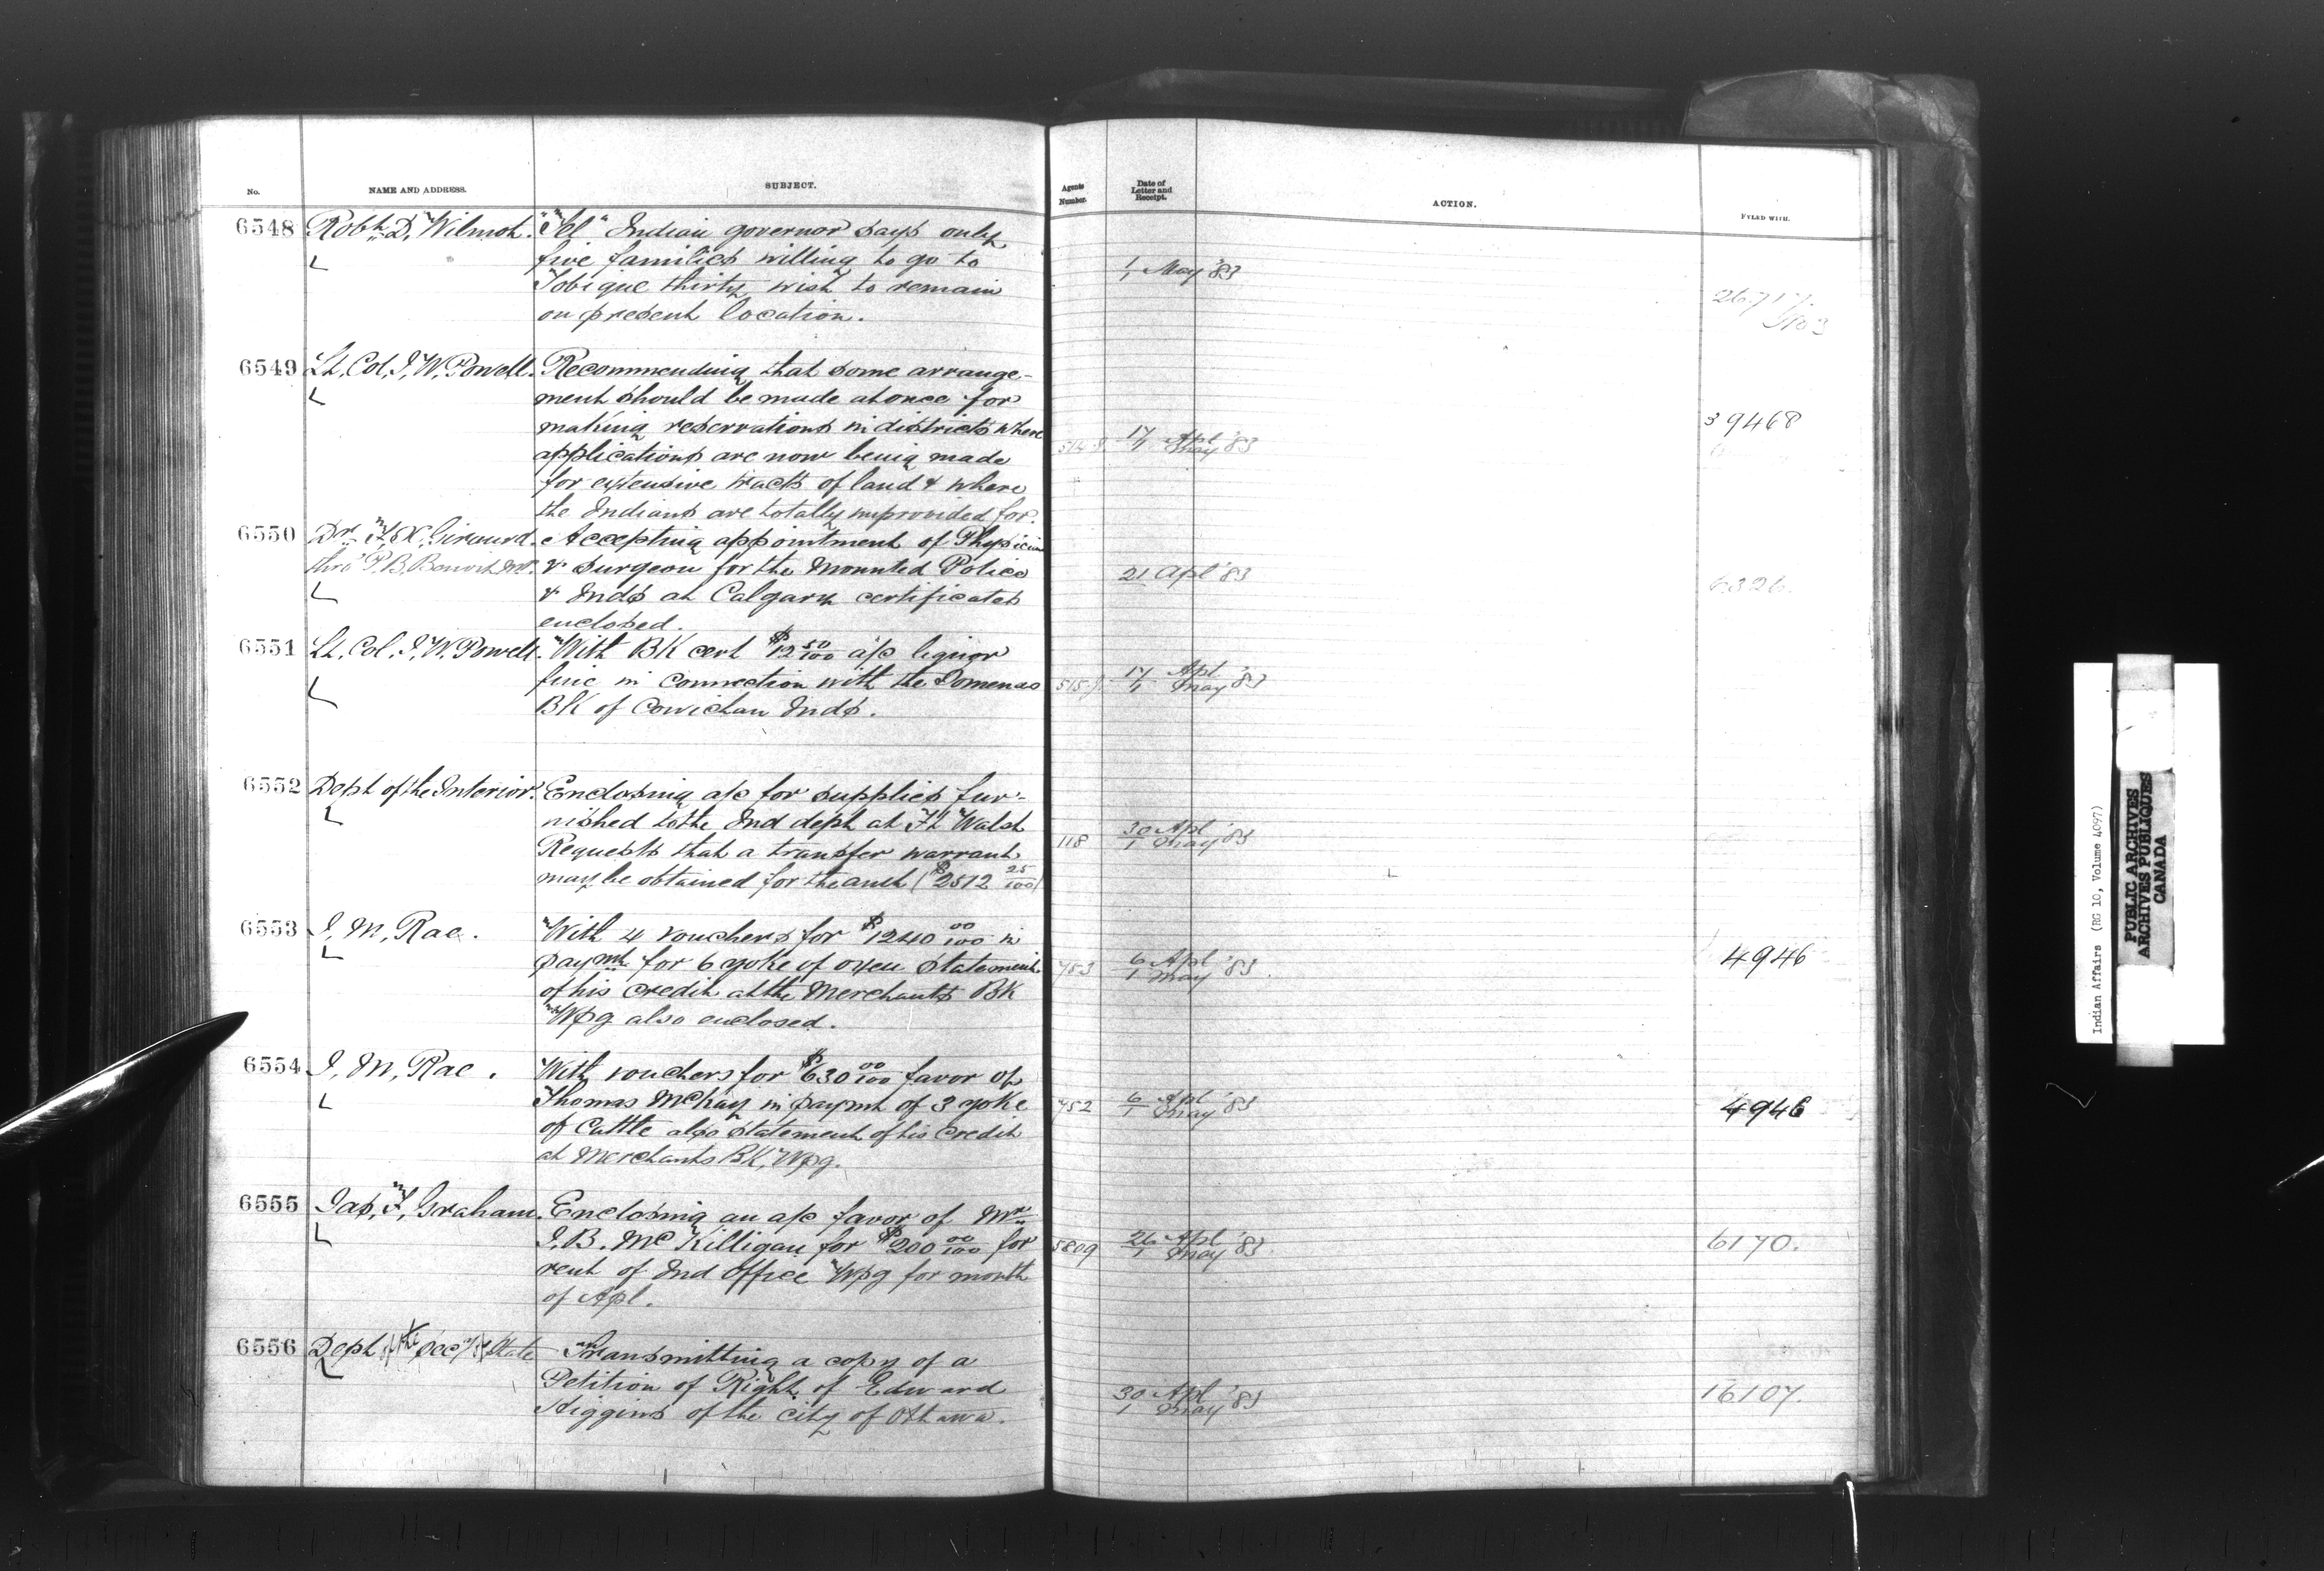 No.
NAME AND ADDRESS.
SUBJECT.
Agents Number.
Date of Letter and Receipt.
ACTION.
FYLED WITH.
6548 Robt. D. Wilmot. "Tel" Indian governor says only
five families willing to go to
Tobique thirty wish to remain
on present location.
1/1 May '83
26717.
6549 Lt. Col. I. W. Powell. Recommending that some arrange-
ment should be made at once for
making reservations in districts where
applications are now being made
for extensive tracts of land & where
the Indians are totally unprovided for.
17/1 Apl May '83
39468
6550 Dr. F. X. Girouard. Accepting appointment of Physician
thro' P. B. Benoit M.P. & surgeon for the Mounted Police
& Inds at Calgary certificates
enclosed.
21 Apl '83
6326.
6551 Lt. Col. I. W. Powell. With BK cert $12 50/100 a/c liquor
fine in connection with the Somenos
BK of Cowichan Inds.
17/1 Apl May '83
6552 Dept of the Interior. Enclosing a/c for supplies fur-
nished to the Ind dept at Ft Walsh
Requests that a transfer warrant
may be obtained for the amt ($2512 25/100)
118
30/1 Apl May '83
6553 J. M. Rae. With 4 vouchers for $1240 00/100 in
paymt for 6 yoke of oxen statement
of his credit at the Merchants BK
Wpg also enclosed.
753
6/1 Apl May '83.
4946
6554 J. M. Rae. With vouchers for $630 00/100 favor of
Thomas McKay in paymt of 3 yoke
of Cattle also statement of his credit
at Merchants BK, Wpg.
752
6/1 Apl May '83
4946
6555 Jas. F. Graham. Enclosing an a/c favor of Mr.
J. B. McKilligan for $200 00/100 for
rent of Ind Office Wpg for month
of Apl.
5809
26/1 Apl May '83.
6170.
6556 Dept of the Secy of State Transmitting a copy of a
Petition of Right of Edward
Higgins of the city of Ottawa.
30/1 Apl May '83
16107.
Indian Affairs (RG 10, Volume 4097)
PUBLIC ARCHIVES
ARCHIVES PUBLIQUES
CANADA